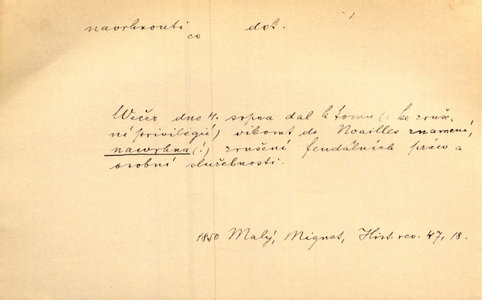 navrhnouti co dok.
Večer dne 4. srpna dal k tomu (: ke zruše-
ní privilegií) vikomt de Noailles znamení,
nawrhna (!) zrušení feudálních práv a
osobní služebnosti.
1850 Malý, Mignet, Hist. rev. 47, 18.